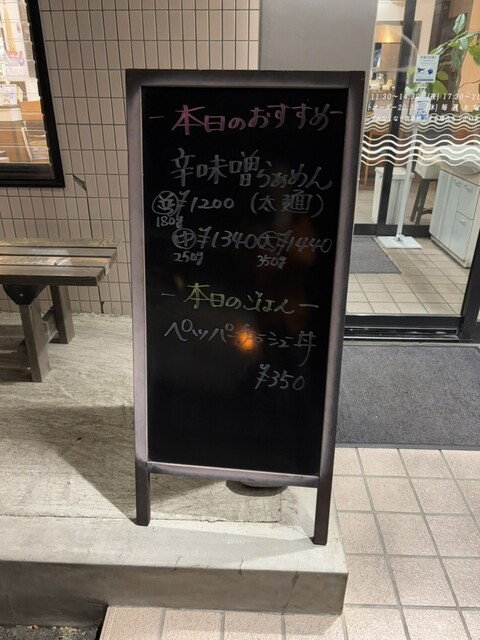 ー本日のおすすめー
辛味噌らぁめん
並¥1200 (太麺)
180g
中¥1340 大¥1440
250g 350g
ー本日のごはんー
ペッパーチャーシュー丼
¥350